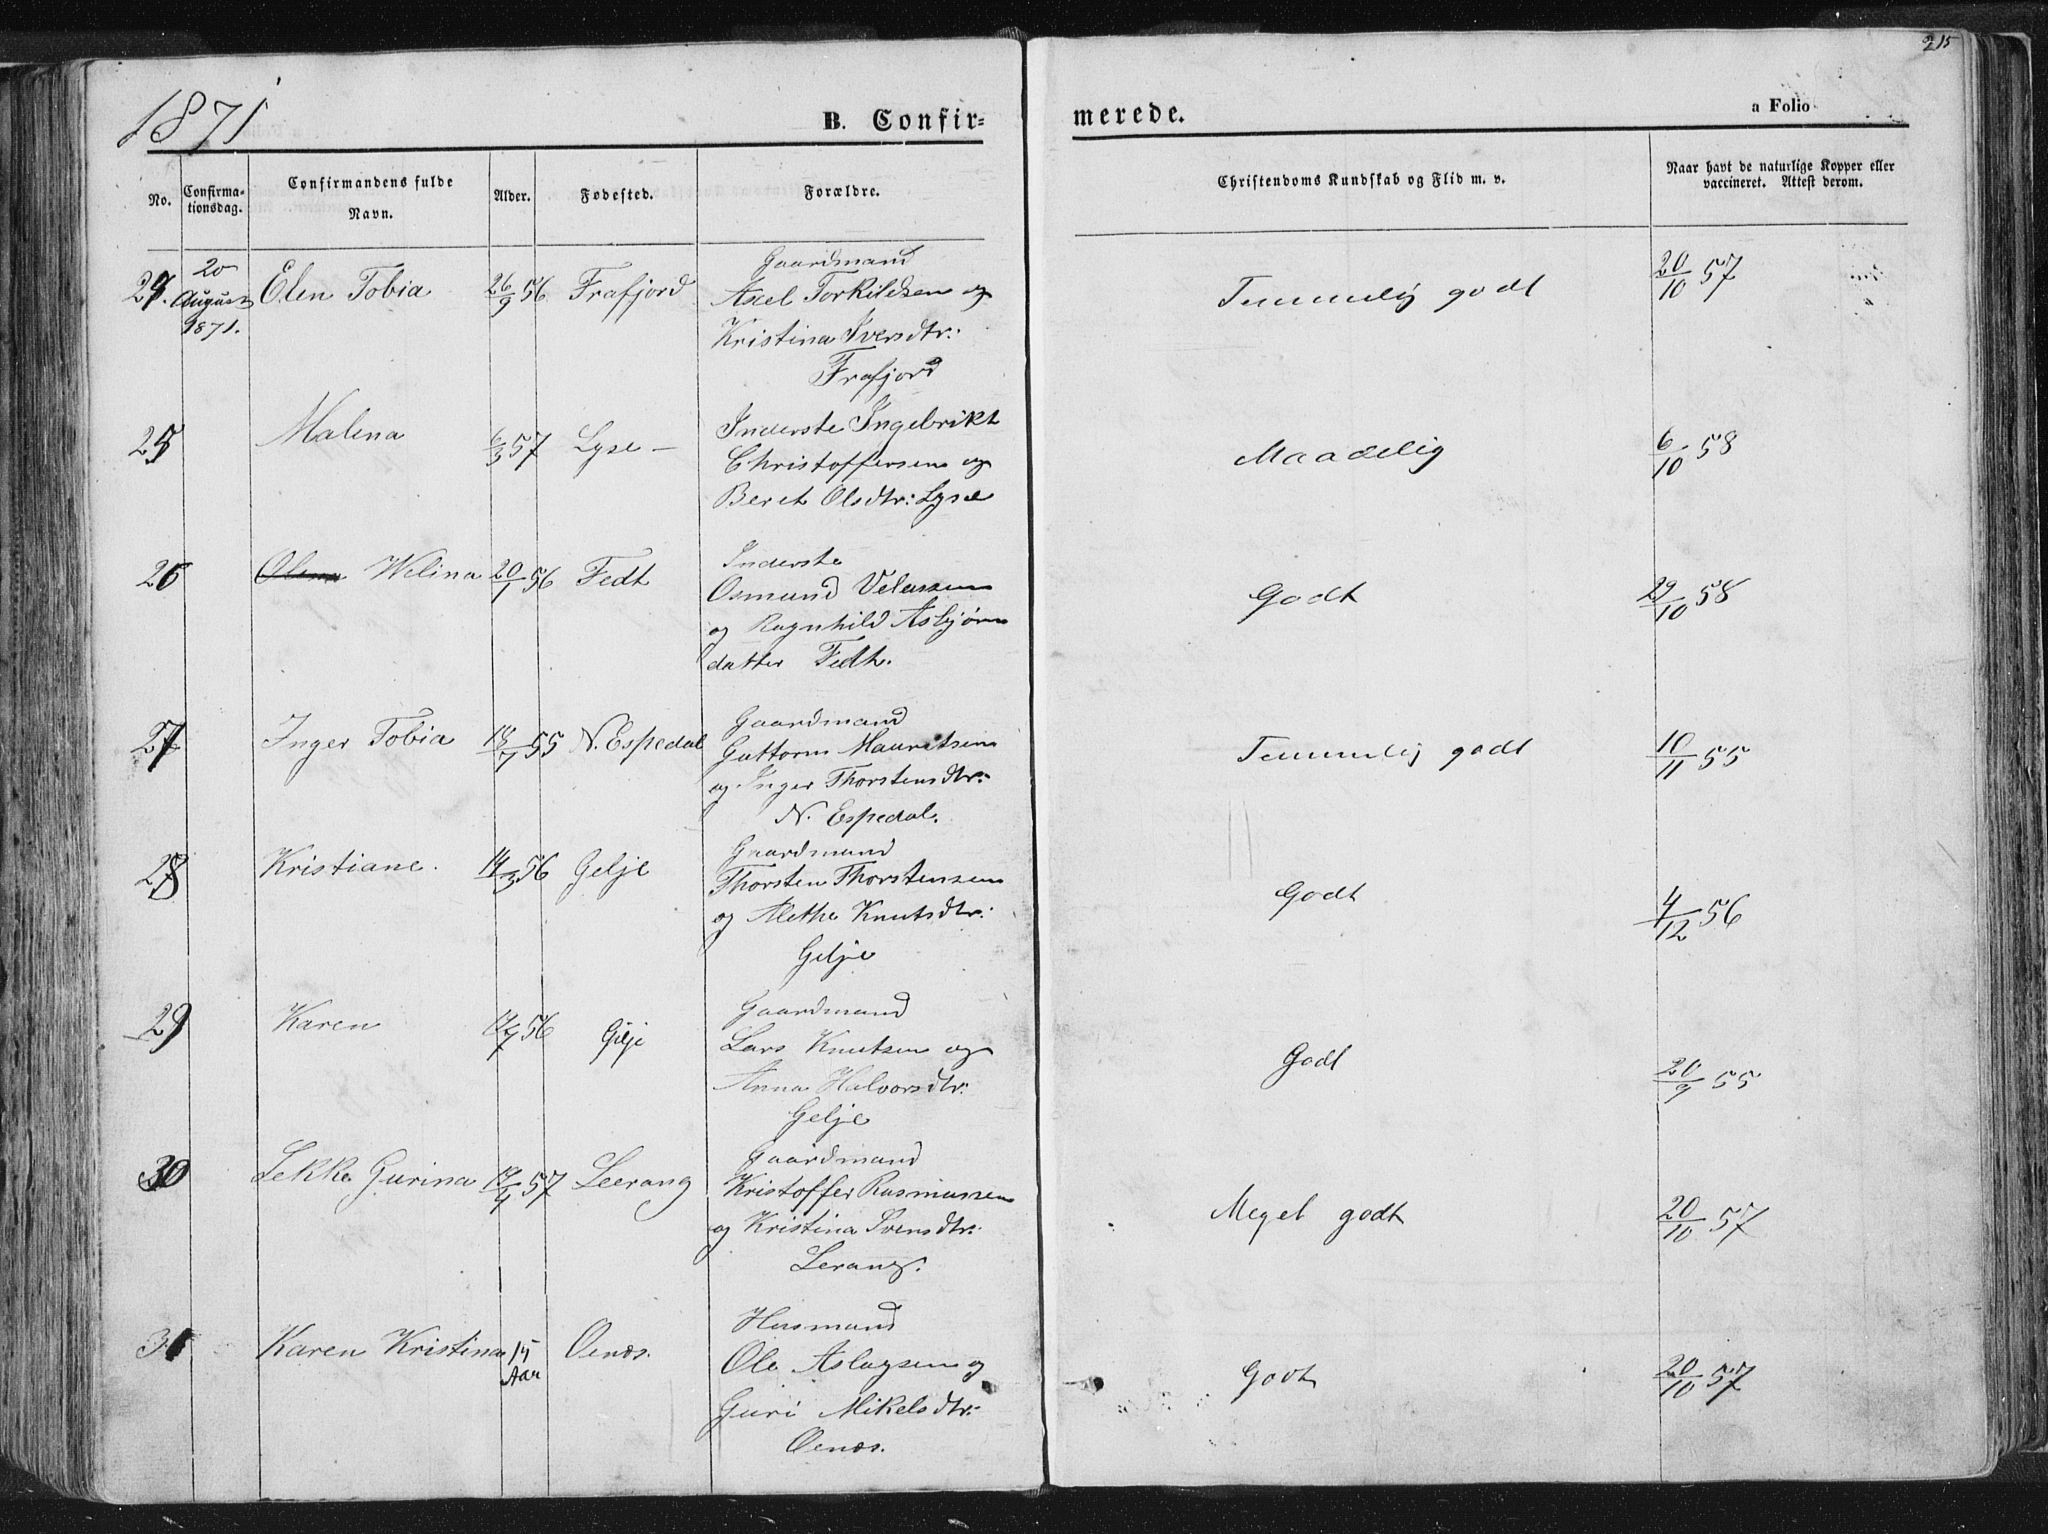 1871
215
B. Confir-
merede.
a Folio
No.
Confirma-
tionsdag.
Confirmandens fulde
Navn.
Alder.
Fødested.
Forældre.
Christendoms Kundskab og Flid m. v.
Naar havt de naturlige Kopper eller
vaccineret. Attest derom.
24. 20 August 1871. Elen Tobia 26/9 56 Frafjord
Gaardmand
Axel Torkildsen og
Kristina Iversdtr:
Frafjord
Temmelig godt 20/10 57
25 Malena 6/3 57 Lyse –
Inderste Ingebrikt
Christoffersen og
Beret Olsdtr: Lyse
Maadelig 6/10 58
26 Olena Welina 20/1 56 Fedt
Inderste
Osmund Velassen
og Ragnhild Asbjørns
datter Fedt.
Godt 29/10 58
27 Inger Tobia 18/7 55 N. Espedal
Gaardmand
Guttorm Mauritsen
og Inger Thorstensdtr:
N. Espedal.
Temmelig godt 10/11 55
28 Kristiane. 14/3 56 Gelje
Gaardmand
Thorsten Thorstensen
og Alethe Knutsdtr:
Gelje
Godt 4/12 56
29 Karen 56 Gilje
Gaardmand
Lars Knutsen og
Anna Halvorsdtr:
Gelje
Godt 20/9 55
30 Sekke Gurina 57 Leerang
Gaardmand
Kristoffer Rasmussen
og Kristina Svensdtr:
Lerang.
Meget godt 20/10 57
31 Karen Kristina 15 Aar Oenæs.
Husmand
Ole Aslagsen og
Guri Mikelsdtr:
Oenæs.
Godt 20/10 57